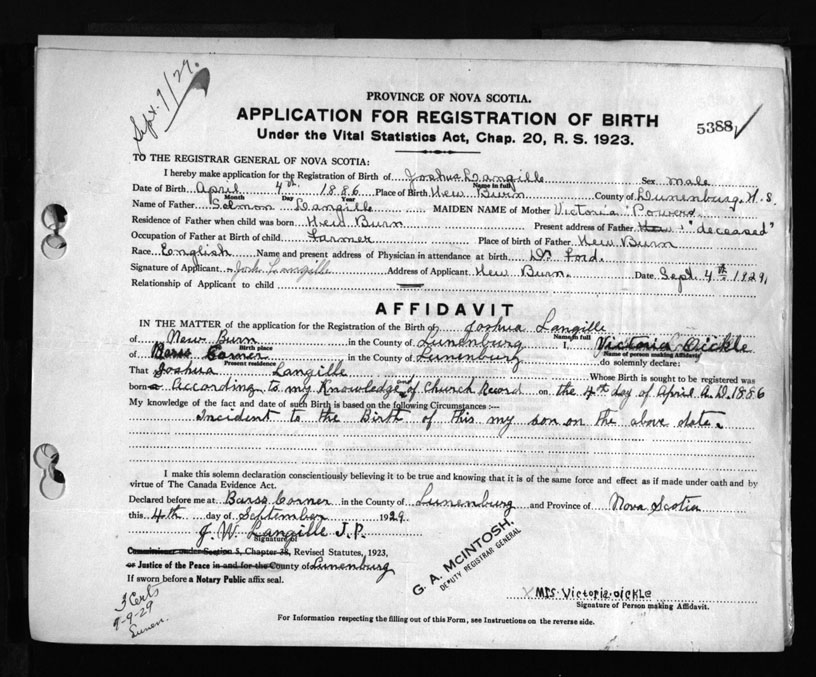 Sept. 9/29.
PROVINCE OF NOVA SCOTIA.
APPLICATION FOR REGISTRATION OF BIRTH
Under the Vital Statistics Act, Chap. 20, R. S. 1923.
5388
TO THE REGISTRAR GENERAL OF NOVA SCOTIA:
I hereby make application for the Registration of Birth of Joshua Langille Sex male
Name in full
Date of Birth April 4th 1886 Place of Birth New Burn County of Lunenburg, N. S.
Month Day Year
Name of Father Solmon Langille MAIDEN NAME of Mother Victoria "Powers"
Residence of Father when child was born New Burn Present address of Father "deceased"
Occupation of Father at Birth of child Farmer Place of birth of Father New Burn
Race English Name and present address of Physician in attendance at birth Dr. Ford.
Signature of Applicant Josh Langille Address of Applicant New Burn. Date Sept. 4th 1929,
Relationship of Applicant to child
AFFIDAVIT
IN THE MATTER of the application for the Registration of the Birth of Joshua Langille
Name in full
of New Burn in the County of Lunenburg I, Victoria Oickle
Birth place Name of person making Affidavit
of Barss Corner in the County of Lunenburg do solemnly declare:
Present residence
That Joshua Langille Whose Birth is sought to be registered was
born According to my Knowledge of Church Record on the 4th day of April A.D. 1886
My knowledge of the fact and date of such Birth is based on the following Circumstances :—
Incident to the Birth of this my son on the above date.
I make this solemn declaration conscientiously believing it to be true and knowing that it is of the same force and effect as if made under oath and by
virtue of The Canada Evidence Act.
Declared before me at Barss Corner in the County of Lunenburg and Province of Nova Scotia
this 4th day of September 1929
J. W. Langille J.P.
Signature of
Commissioner under Section 5, Chapter 38, Revised Statutes, 1923,
or Justice of the Peace in and for the County of Lunenburg
If sworn before a Notary Public affix seal.
G. A. McINTOSH,
DEPUTY REGISTRAR GENERAL
x Mrs. Victoria Oickle
Signature of Person making Affidavit.
9-9-29
Lunen.
For Information respecting the filling out of this Form, see Instructions on the reverse side.